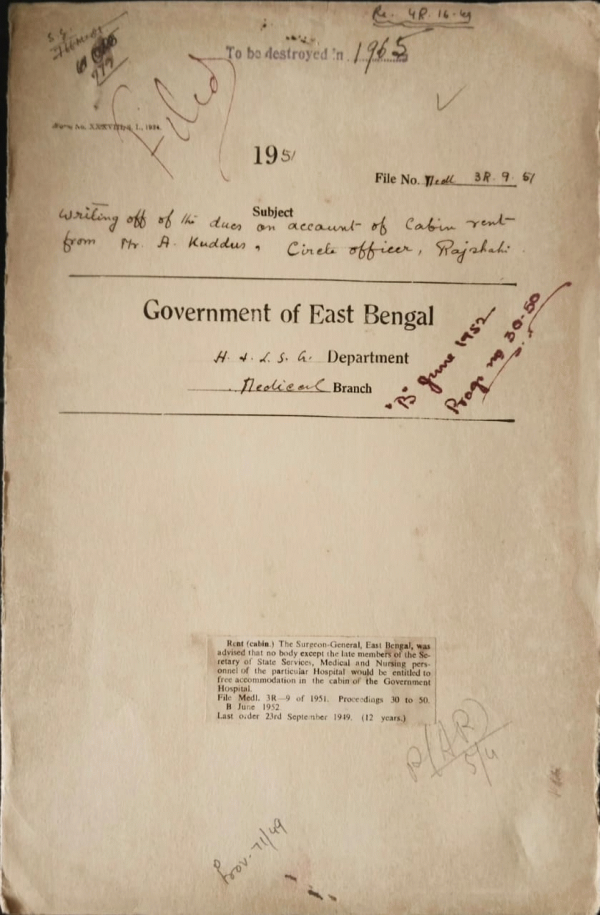 Re. 4R-16-49
To be destroyed in 1965
Filed
1951
File No. Medl 3R-9-51
Subject
Writing off of the dues on account of Cabin rent
from Mr. A. Kuddus, Circle officer, Rajshahi.
Government of East Bengal
H. & L. S. G. Department
Medical Branch
"B" June 1952
Progs no 30-50
Rent (cabin.) The Surgeon-General, East Bengal, was
advised that no body except the late members of the Se-
cretary of State Services, Medical and Nursing pers-
onnel of the particular Hospital would be entitled to
free accommodation in the cabin of the Government
Hospital.
File Medl. 3R—9 of 1951. Proceedings 30 to 50.
B June 1952.
Last order 23rd September 1949. (12 years.)
P(AR)
5/4
Prov. 71/49